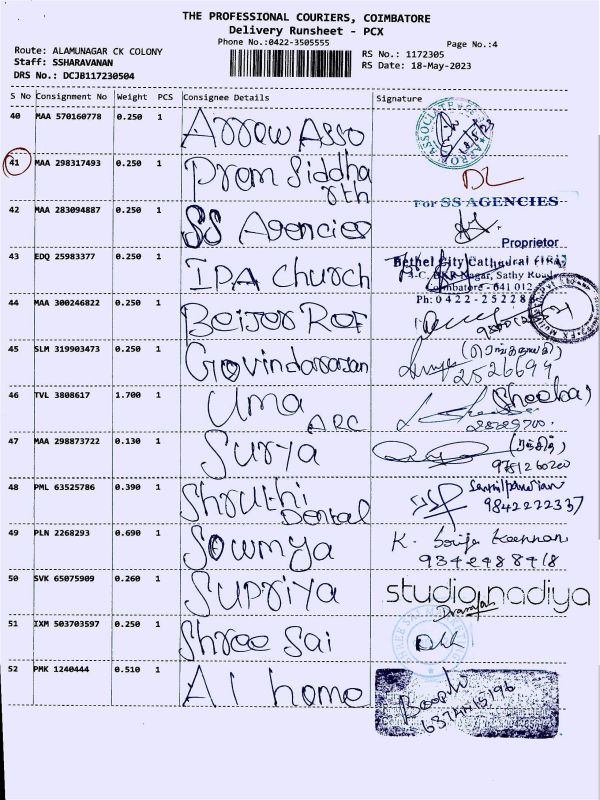 THE PROFESSIONAL COURIERS, COIMBATORE
Delivery Runsheet - PCX
Phone No.:0422-3505555
Page No.:4
Route: ALAMUNAGAR CK COLONY
RS No.: 1172305
Staff: SSHARAVANAN
RS Date: 18-May-2023
DRS No.: DCJB117230504
S No Consignment No Weight PCS Consignee Details Signature
40 MAA 570160778 0.250 1 Arrow Asso
41 MAA 298317493 0.250 1 Prem Siddha
rth
DL
For SS AGENCIES
42 MAA 283094887 0.250 1 SS Agencies
Proprietor
43 EDQ 25983377 0.250 1 IPA church
Bethel City Cathedral (IPA)
Nagar, Sathy Road
Coimbatore - 641 012
Ph: 0422-25228
44 MAA 300246822 0.250 1 Beijer Ref
45 SLM 319903473 0.250 1 Govindarasan
2526699
46 TVL 3808617 1.700 1 Uma
ARC
(Sheeba)
47 MAA 298873722 0.130 1 Surya
(ரஞ்சித்)
9751260200
48 PML 63525786 0.390 1 Shruthi
Dental
Senthilpandian
9842222337
49 PLN 2268293 0.690 1 Sowmya
K.
9342488418
50 SVK 65075909 0.260 1 Supriya
studio nadiya
51 IXM 503703597 0.250 1 Shree Sai
52 PMK 1240444 0.510 1 A1 home